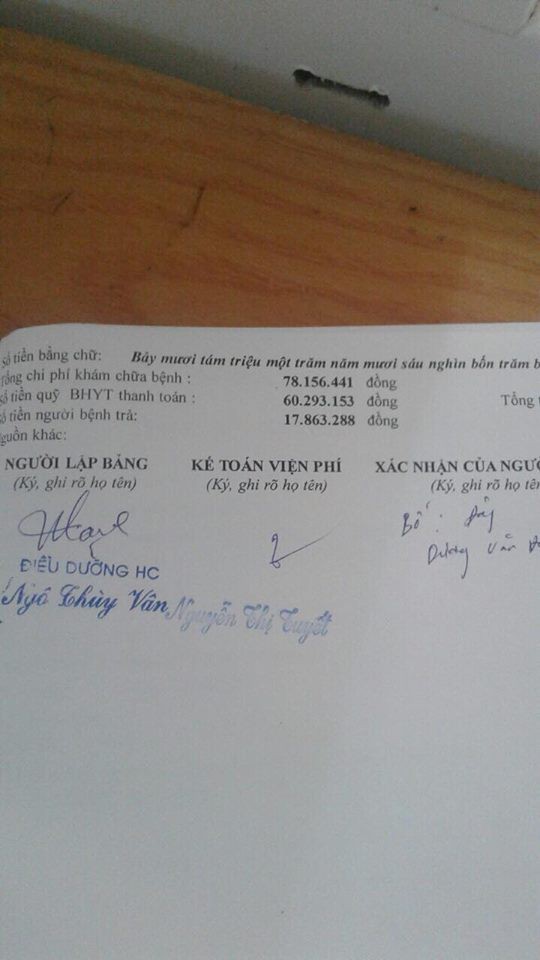 số tiền bằng chữ: Bảy mươi tám triệu một trăm năm mươi sáu nghìn bốn trăm b
ổng chi phí khám chữa bệnh : 78.156.441 đồng
số tiền quỹ BHYT thanh toán : 60.293.153 đồng Tổng t
số tiền người bệnh trả: 17.863.288 đồng
guồn khác:
NGƯỜI LẬP BẢNG KẾ TOÁN VIỆN PHÍ XÁC NHẬN CỦA NGƯỜ
(Ký, ghi rõ họ tên) (Ký, ghi rõ họ tên) (Ký, ghi rõ họ tên
Bố: Đây
Dương Văn
ĐIỀU DƯỠNG HC
Ngô Thùy Vân Nguyễn Thị Tuyết